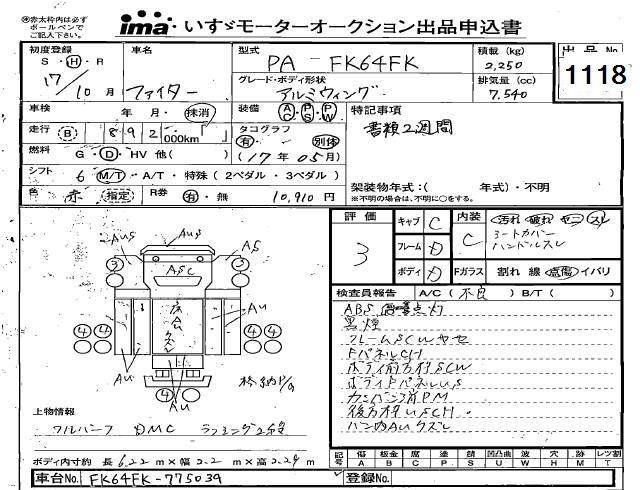 ※赤太枠内は必ず
ボールペンで
ご記入下さい。
ima いすゞモーターオークション出品申込書
出品 No
1118
初度登録
S・H・R
17/10 月
車名
ファイター
型式
PA - FK64FK
グレード・ボディ形状
アルミウィング
積載 (kg)
2,250
排気量 (cc)
7,540
車検 年・月・抹消
装備 AC PS PW
走行 B 892 000km
タコグラフ
有・別体
(17年05月)
燃料 G・D・HV 他( )
シフト 6 M/T・A/T・特殊 (2ペダル・3ペダル)
色 赤 指定 R券 有・無 10,910 円
特記事項
書類2週間
架装物年式:( 年式)・不明
※不明の場合は、不明に○をする。
評価
3
キャブ C
フレーム D
ボディ D
内装
C
汚れ 破れ ヤニ スレ
シートカバー
ハンドルスレ
Fガラス 割れ 線 点傷 イバリ
検査員報告 A/C (不良) B/T ( )
ABS 点灯
黒煙
フレームSCUヤセ
FパネルCH
ボディ前方枠SCW
ボディFパネルUS
PM
後方枠USCH
AUS
AUS
AS
3
3
ASC
AU
4 4
4 4
AU
AU
4
格納P/G
上物情報
フルハーフ DMC ラッシング2段
ボディ内寸約 長 6.22 m×幅 2.2 m×高 2.24 m
記号 傷 A 板金 B 腐 C 塗 P 錆 S 凹凸曲 U 波 W 穴 H 跡 M レンズ割 T
車台No. FK64FK-775039
登録No.